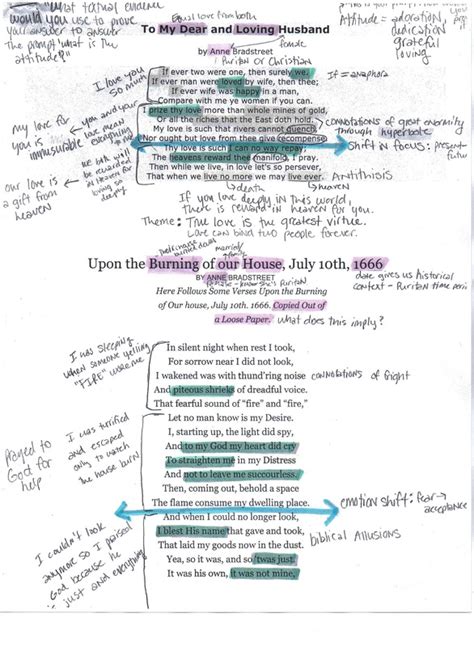 what textual evidence
would you use to prove
your answer to answer
the prompt "what is the
attitude?"
Equal love from both
Attitude = adoration,
dedication
grateful
loving
To My Dear and Loving Husband
by Anne Bradstreet
female
Puritan or Christian
If ever two were one, then surely we.
If ever man were loved by wife, then thee;
If ever wife was happy in a man,
Compare with me ye women if you can.
I prize thy love more than whole mines of gold,
Or all the riches that the East doth hold.
My love is such that rivers cannot quench,
Nor ought but love from thee give recompense.
Thy love is such I can no way repay;
The heavens reward thee manifold, I pray.
Then while we live, in love let's so persever,
That when we live no more we may live ever.
I love you
so much
If = anaphora
my love for
you is
immeasurable
you and your
love mean
everything
connotations of great enormity
through hyperbole
Shift in focus: present
future
we both will
be rewarded
in heaven for
loving so
deeply
our love is
a gift from
heaven
Antithisis
death
heaven
If you love deeply in this world,
there is reward in heaven for you.
Theme: True love is the greatest virtue.
Love can bind two people forever.
married
Upon the Burning of our House, July 10th, 1666
by ANNE BRADSTREET
female - know she's Puritan
date gives us historical
context - Puritan time
Here Follows Some Verses Upon the Burning
of Our house, July 10th. 1666. Copied Out of
a Loose Paper.
What does this imply?
In silent night when rest I took,
For sorrow near I did not look,
I wakened was with thund'ring noise
And piteous shrieks of dreadful voice.
That fearful sound of "fire" and "fire,"
Let no man know is my Desire.
I, starting up, the light did spy,
And to my God my heart did cry
To straighten me in my Distress
And not to leave me succourless.
Then, coming out, behold a space
The flame consume my dwelling place.
And when I could no longer look,
I blest His name that gave and took,
That laid my goods now in the dust.
Yea, so it was, and so 'twas just.
It was his own, it was not mine,
I was sleeping
when someone yelling
"FIRE" woke me
connotations of fright
I was terrified
and escaped
only to watch
the house burn
Prayed to
God for
help
emotion shift: fear →
acceptance
I couldn't look
anymore so I praised
God because he
just and everything
biblical Allusions